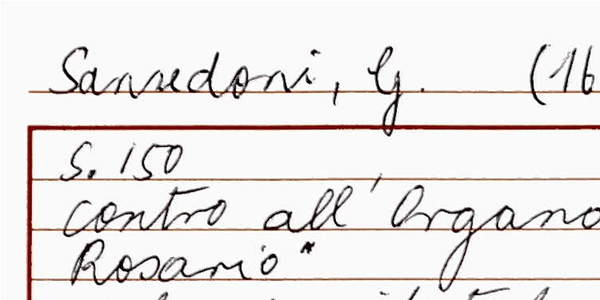 Sansedoni, G. (16
S. 150
contro all'Organo
Rosario"